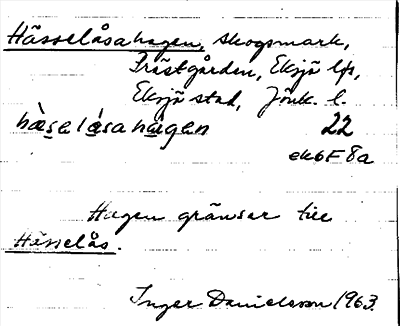 Hässelåsahagen, skogsmark,
Prästgården, Eksjö lfs,
Eksjö stad, Jönk. l.
hæ̀sel​ǻsahāgen 22
ek 6F8a
Hagen gränsar till
Hässelås.
Inger Danielsson 1963.